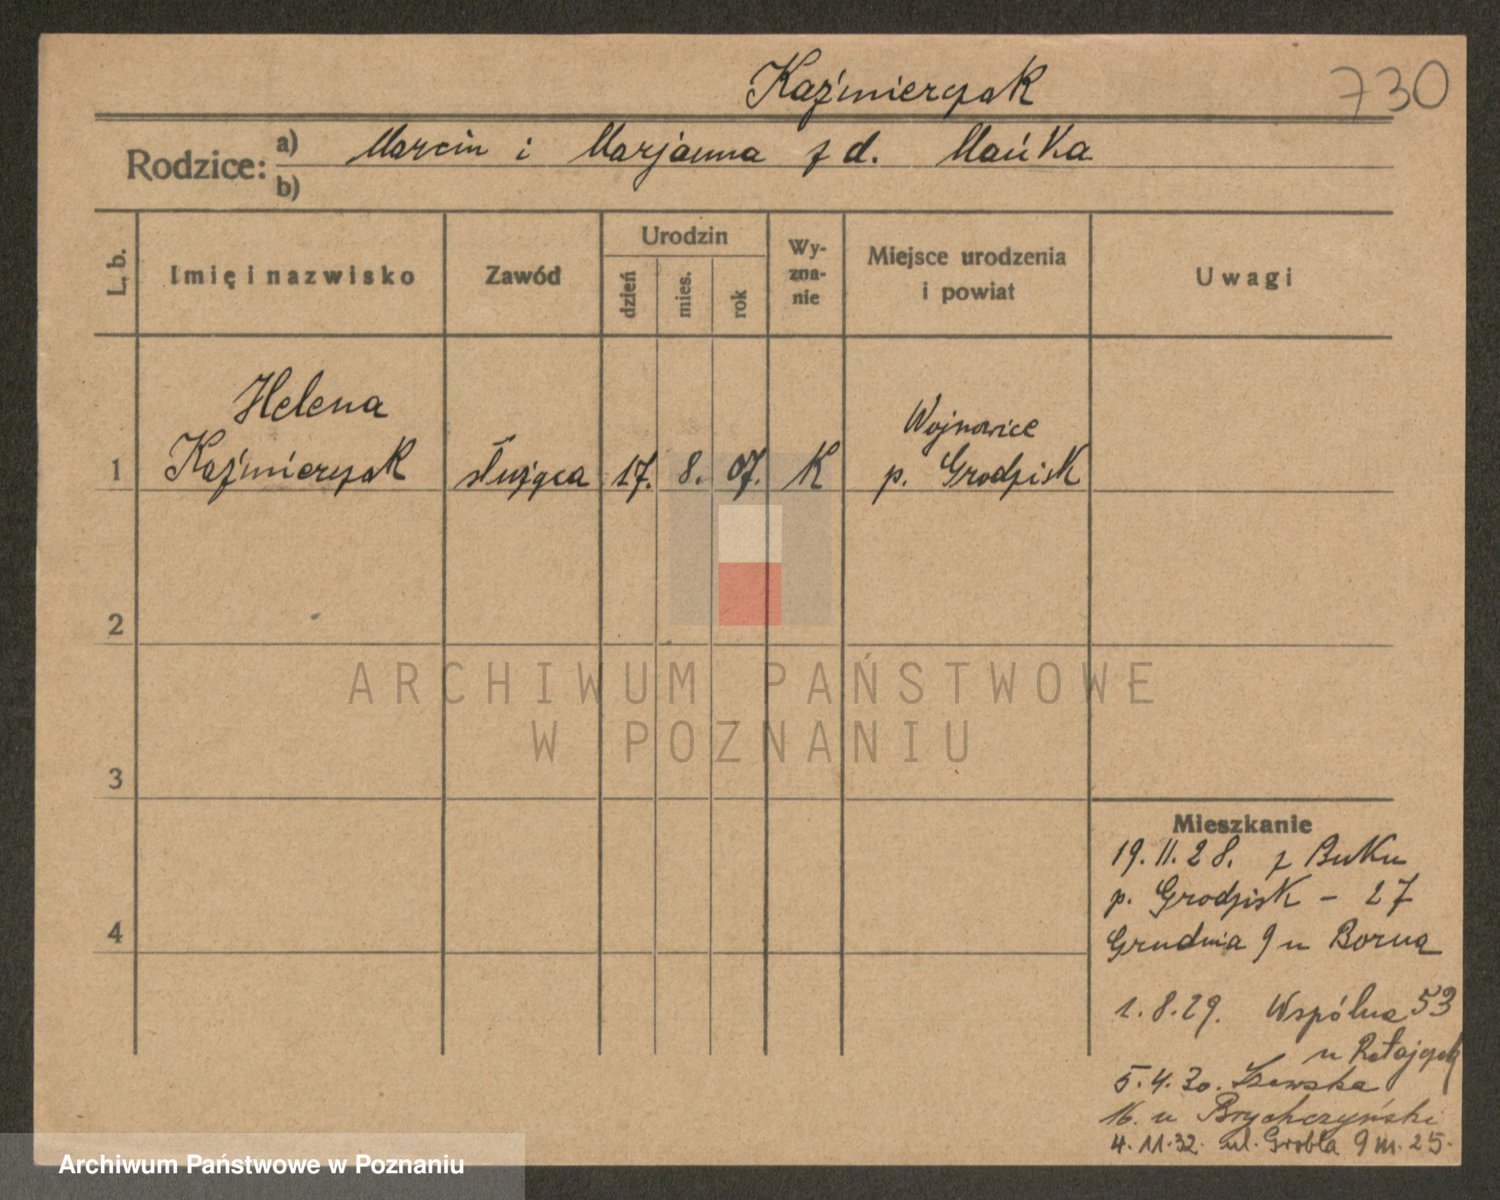 Kaźmierczak
730
Rodzice: a) Marcin i Marjanna z d. Mańka
b)
L. b.
Imię i nazwisko
Zawód
Urodzin
dzień
mies.
rok
Wy-
zna-
nie
Miejsce urodzenia
i powiat
Uwagi
Helena
Kaźmierczak
1
służąca
17.
8.
07.
K
Wojnowice
p. Grodzisk
2
3
4
Mieszkanie
19.11.28. z Buku
p. Grodzisk - 27
Grudnia 9 u Borna
1.8.29. Wspólna 53
u Ratajczak
5.4.30. Szewska
16. u Brychczyński
4.11.32. ul. Grobla 9 m. 25.
ARCHIWUM PAŃSTWOWE
W POZNANIU
Archiwum Państwowe w Poznaniu